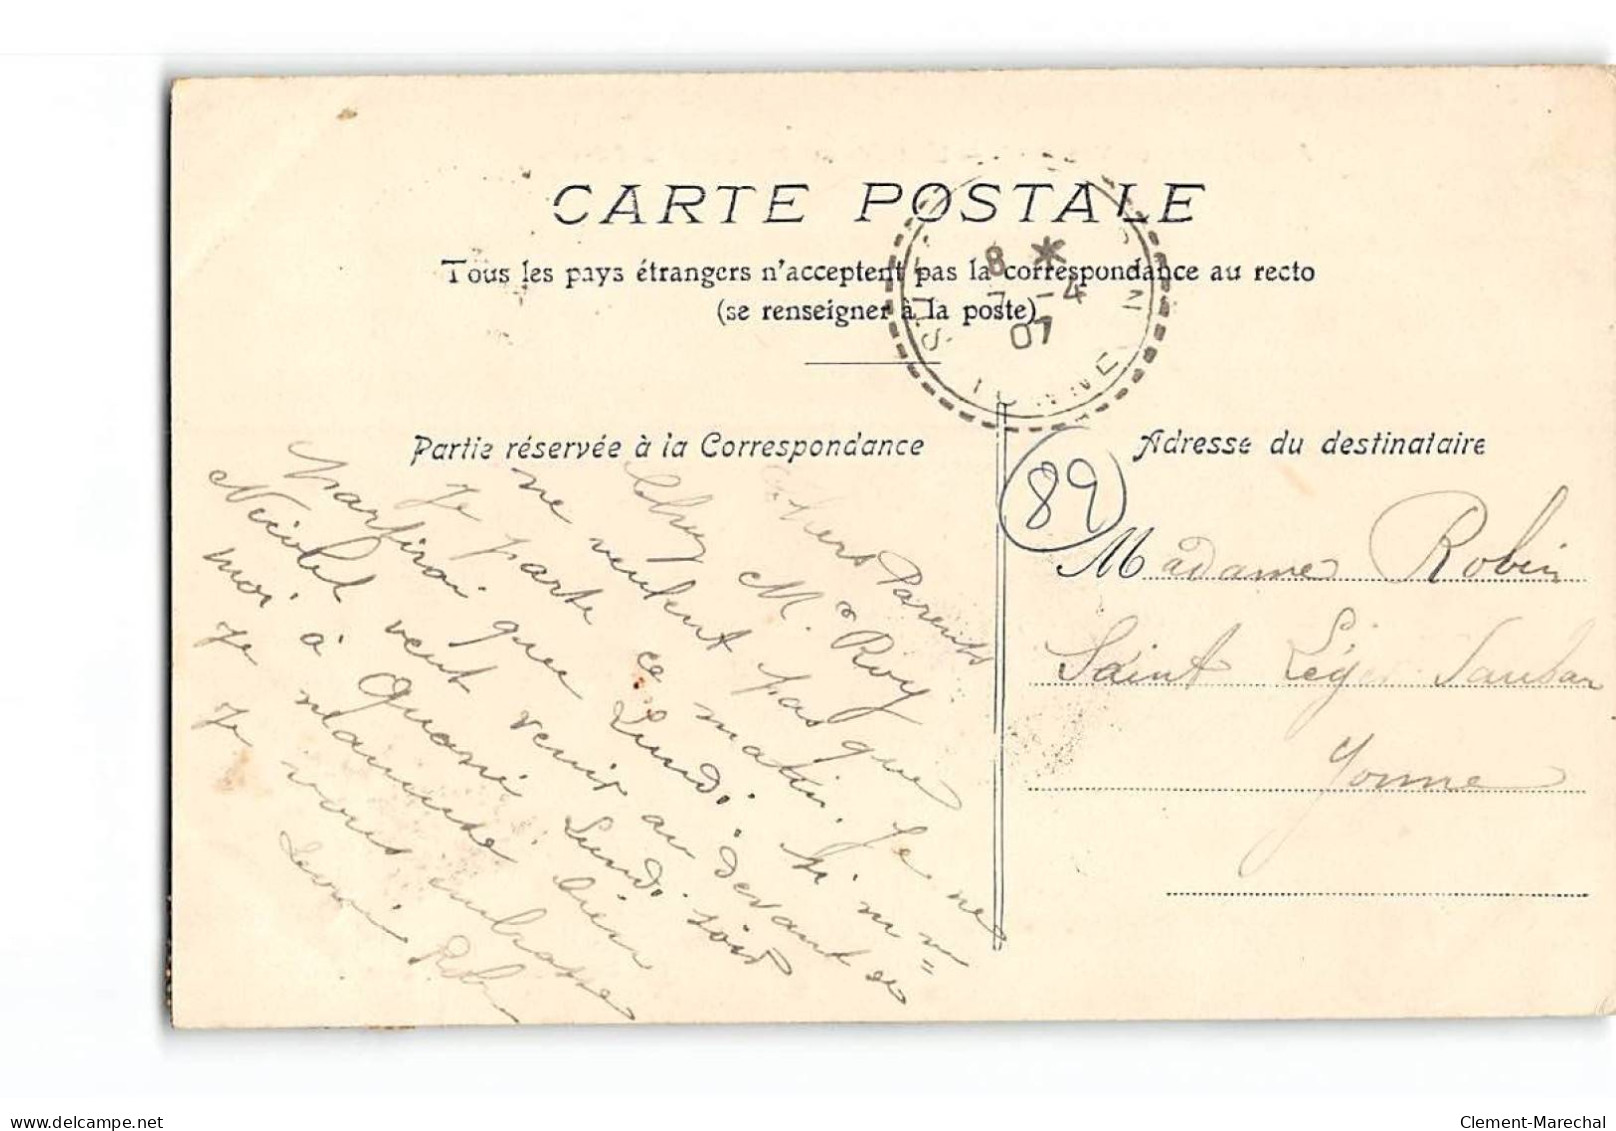 CARTE POSTALE
Tous les pays étrangers n'acceptent pas la correspondance au recto
(se renseigner à la poste)
8 *
7 -4
07
YONNE
Partie réservée à la Correspondance
Adresse du destinataire
89
Chers Parents
M. Roy
ne veulent pas que
Je parte ce matin. Je ne
partirai que Lundi. si
Nicolet veut venir au devant de
moi à Quarré Lundi soir
Je
Je vous embrasse
Madame Robin
Saint Léger Vauban
Yonne
delcampe.net
Clement-Marechal